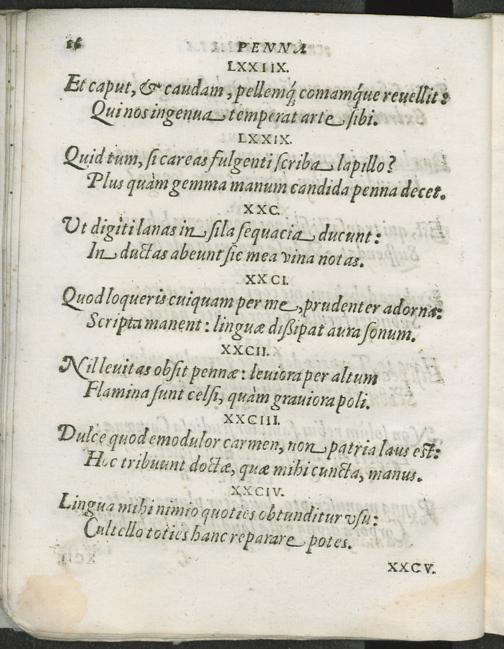 16 PENNA
LXXIIX.
Et caput, & caudam, pellemq́; comamq́ue reuellit:
Qui nos ingenua temperat arte sibi.
LXXIX.
Quid tum, si careas fulgenti scriba lapillo?
Plus quàm gemma manum candida penna decet.
XXC.
Vt digiti lanas in fila sequacia ducunt:
In ductas abeunt sic mea vina notas.
XXCI.
Quod loqueris cuiquam per me, prudenter adorna:
Scripta manent: linguæ dißipat aura sonum.
XXCII.
Nil leuitas obsit pennæ: leuiora per altum
Flamina sunt celsi, quàm grauiora poli.
XXCIII.
Dulce quod emodulor carmen, non patria laus est:
Hoc tribuunt doctæ, quæ mihi cuncta, manus.
XXCIV.
Lingua mihi nimio quoties obtunditur vsu:
Cultello toties hanc reparare potes.
XXCV.